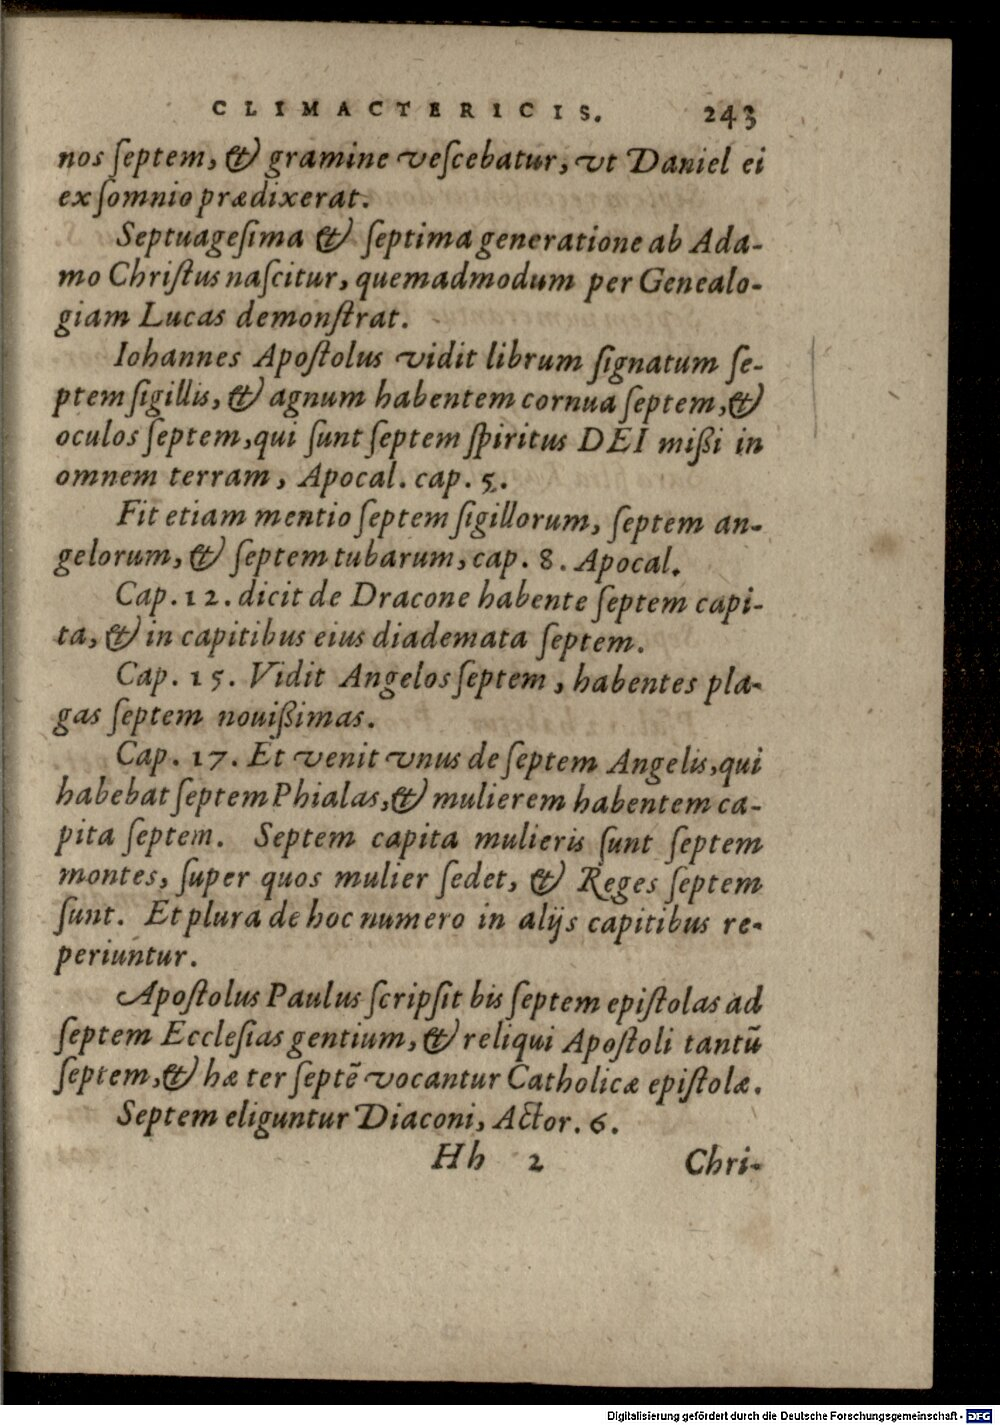 CLIMACTERICIS. 243
nos ſeptem, & gramine veſcebatur, vt Daniel ei
ex ſomnio prædixerat.
Septuageſima & ſeptima generatione ab Ada-
mo Chriſtus naſcitur, quemadmodum per Genealo-
giam Lucas demonſtrat.
Iohannes Apoſtolus vidit librum ſignatum ſe-
ptem ſigillis, & agnum habentem cornua ſeptem, &
oculos ſeptem, qui ſunt ſeptem ſpiritus DEI mißi in
omnem terram, Apocal. cap. 5.
Fit etiam mentio ſeptem ſigillorum, ſeptem an-
gelorum, & ſeptem tubarum, cap. 8. Apocal.
Cap. 12. dicit de Dracone habente ſeptem capi-
ta, & in capitibus eius diademata ſeptem.
Cap. 15. Vidit Angelos ſeptem, habentes pla-
gas ſeptem nouißimas.
Cap. 17. Et venit vnus de ſeptem Angelis, qui
habebat ſeptem Phialas, & mulierem habentem ca-
pita ſeptem. Septem capita mulieris ſunt ſeptem
montes, ſuper quos mulier ſedet, & Reges ſeptem
ſunt. Et plura de hoc numero in alijs capitibus re-
periuntur.
Apoſtolus Paulus ſcripſit bis ſeptem epiſtolas ad
ſeptem Eccleſias gentium, & reliqui Apoſtoli tantū
ſeptem, & hæ ter ſeptē vocantur Catholicæ epiſtolæ.
Septem eliguntur Diaconi, Actor. 6.
Hh 2 Chri-
Digitalisierung gefördert durch die Deutsche Forschungsgemeinschaft - DFG